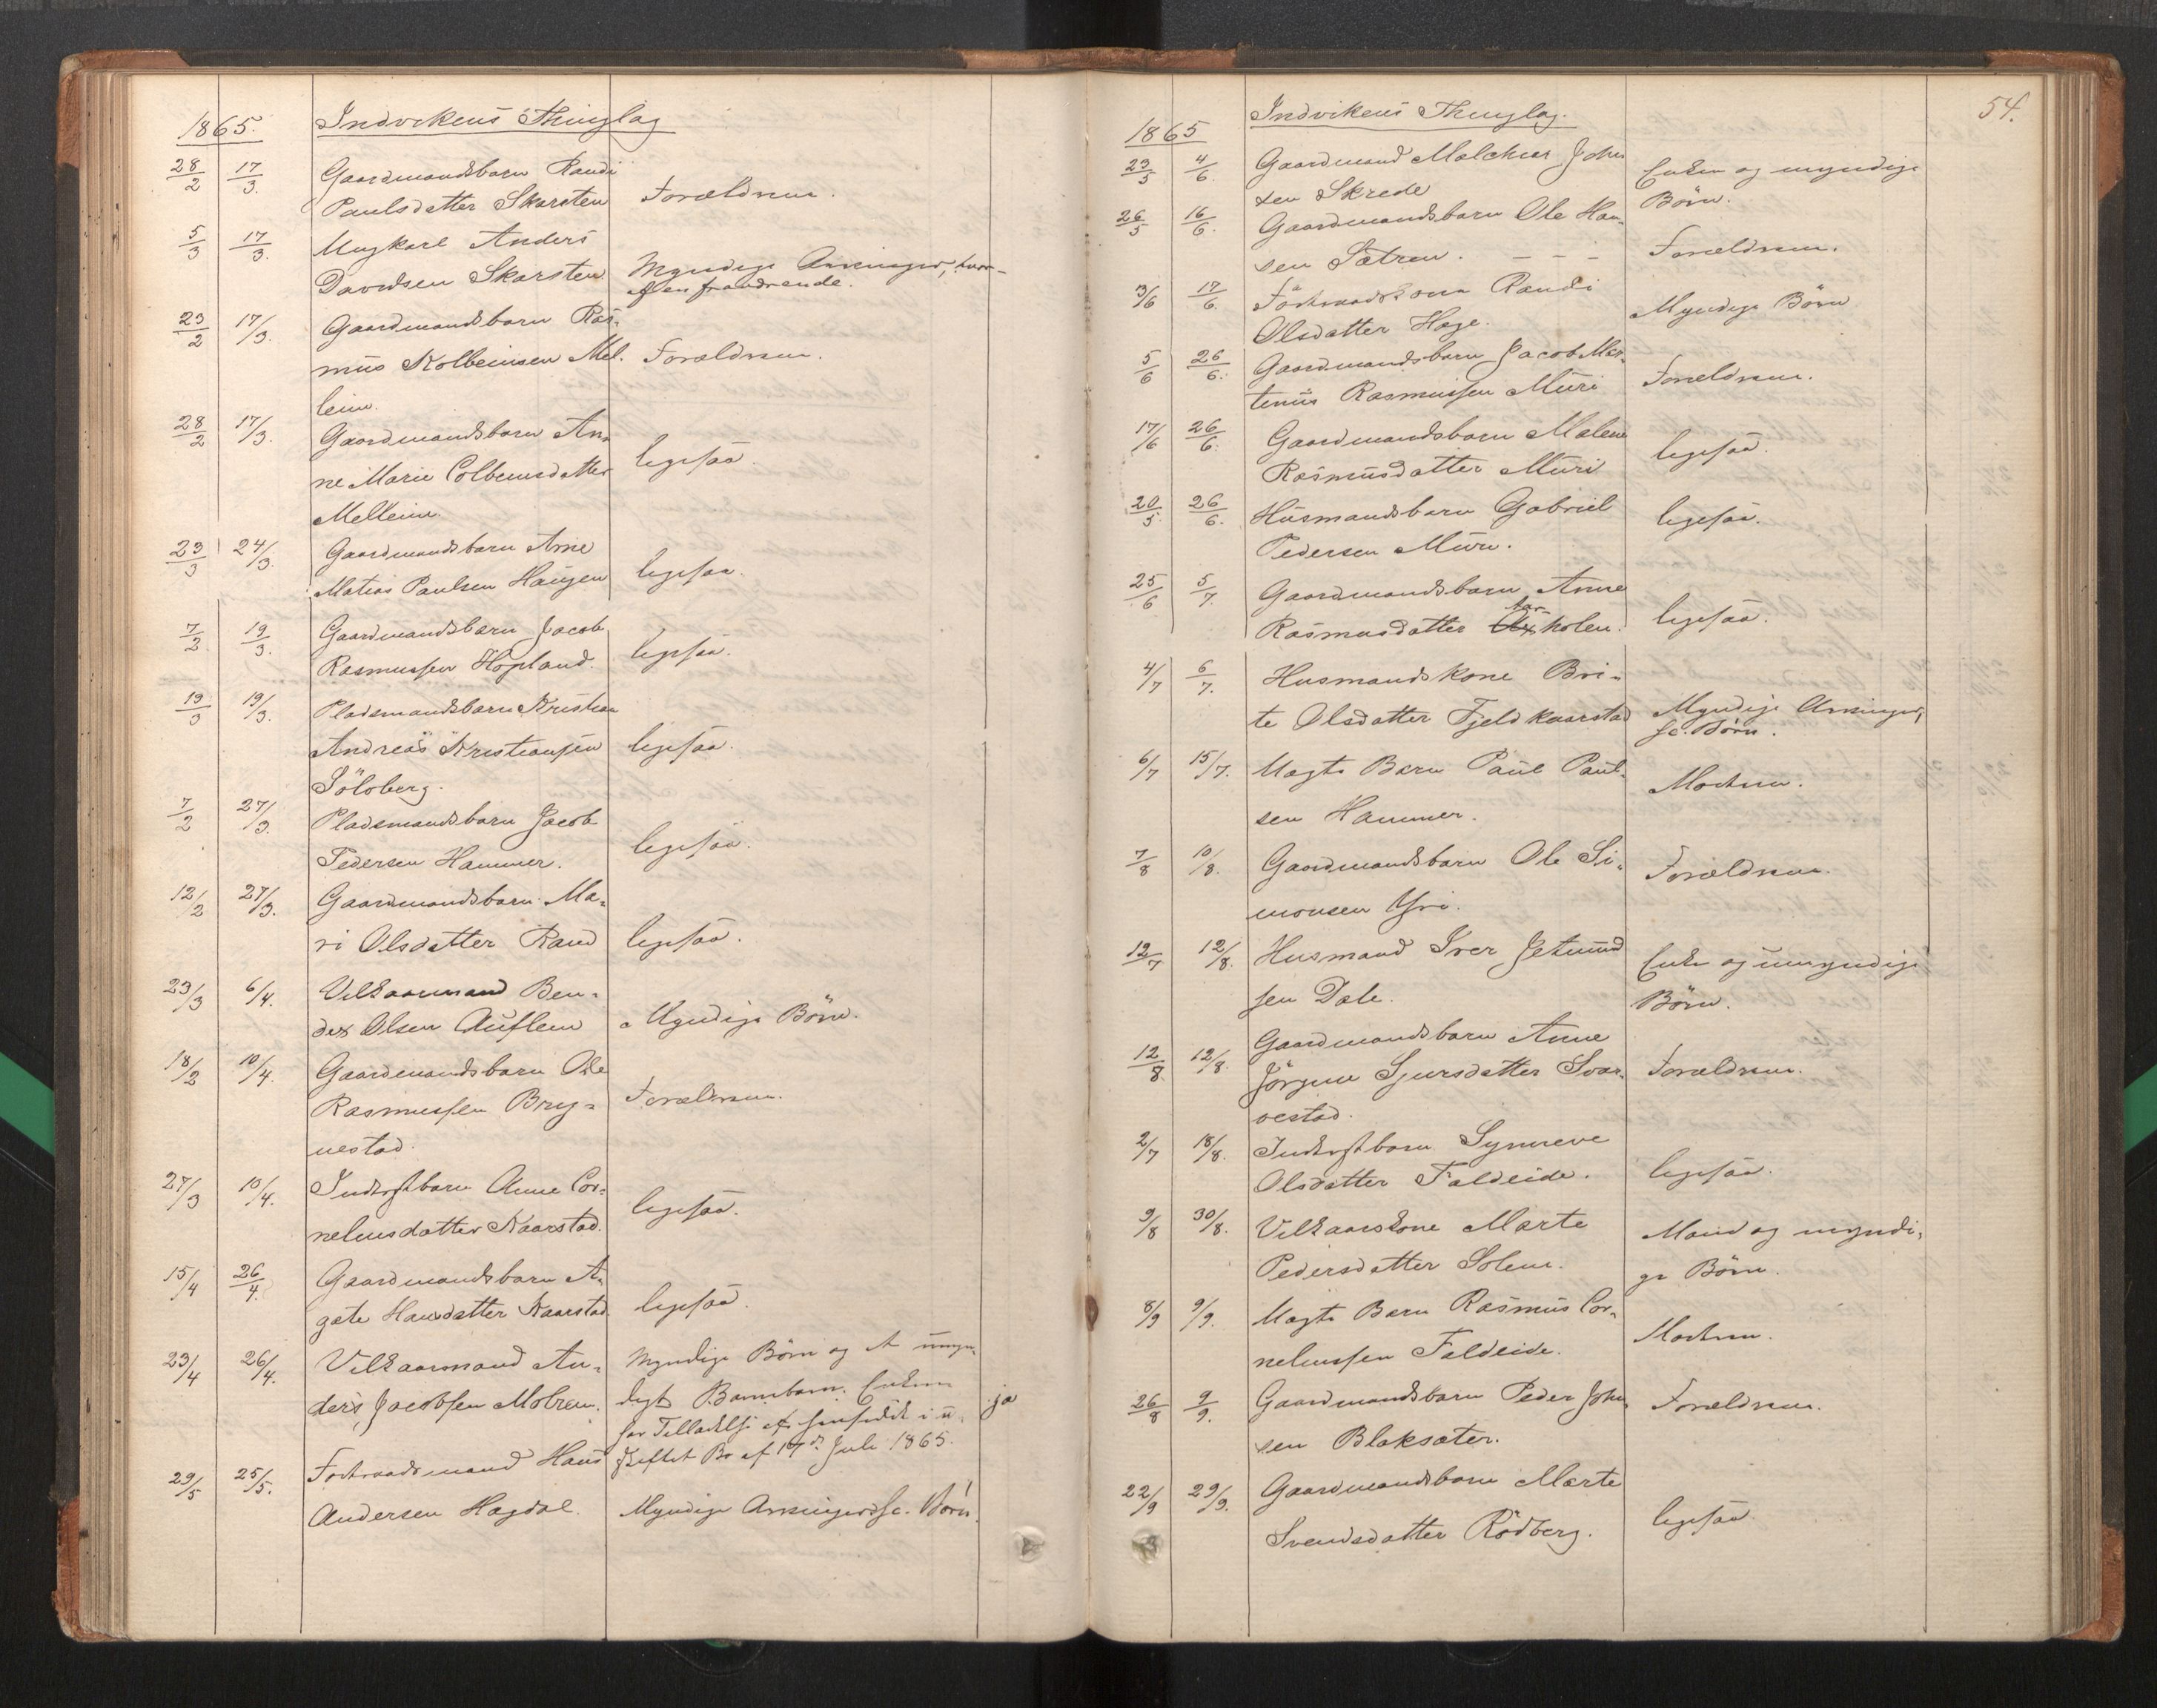 1865. Indvikens Thinglag
28/2 17/3 Gaardmandsbarn Randi
Paulsdatter Skarsten Forældrene.
5/3 17/3. Ungkarl Anders
Davidsen Skarsten Myndige Arvinger, hvor-
af en fraværende.
23/2 17/3. Gaardmandsbarn Ras-
mus Kolbeinsen Mel- Forældrene.
leim.
28/2 17/3. Gaardmandsbarn An-
ne Marie Colbeinsdatter ligesaa.
Melleim.
23/3 24/3. Gaardmandsbarn Arne
Matias Paulsen Haugen ligesaa.
7/2 19/3. Gaardmandsbarn Jacob
Rasmussen Hopland. ligesaa.
19/3 19/3. Pladsmandsbarn Kristian
Andreas Kristiansen ligesaa.
Söloberg.
7/2 27/3. Pladsmandsbarn Jacob
Pedersen Hammer. ligesaa.
12/2 27/3. Gaardmandsbarn Ma-
ri Olsdatter Rand ligesaa.
23/3 6/4. Vilkaarmand Ben-
dex Olsen Auflem Myndige Börn.
18/2 10/4. Gaardmandsbarn Ole
Rasmussen Bryg- Forældrene.
nestad.
27/3 10/4. Inderstbarn Anne Cor-
neliusdatter Kaarstad. ligesaa.
15/4 26/4. Gaardmandsbarn A-
gate Hansdatter Kaarstad. ligesaa.
23/4 26/4. Vilkaarmand An- Myndige Börn og et umyn-
ders Jacobsen Molrem. digt Barnebarn. Enken ja
har Tilladelse at hensidde i u-
skiftet Bo af 17de Juli 1865.
29/5 25/5. Forhvædsmand Hans
Andersen Hagdal. Myndige Arvinger se. Börn.
54.
1865 Indvikens Thinglag.
23/5 4/6. Gaardmand Malchior John-
sen Skrede Enken og myndige
Börn.
26/5 16/6. Gaardmandsbarn Ole Han-
sen Sætren. - - - Forældrene.
3/6 17/6. Randi
Olsdatter Hage. Myndige Börn
5/6 26/6. Gaardmandsbarn Jacob Mar-
tinus Rasmussen Muri Forældrene.
17/6 26/6. Gaardmandsbarn Malene
Rasmusdatter Muri ligesaa.
20/5 26/6. Husmandsbarn Gabriel
Pedersen Muri. ligesaa.
25/6 5/7. Gaardmandsbarn Anne
Rasmusdatter holen. ligesaa.
4/7 6/7. Husmandskone Bri-
te Olsdatter Fjeldkaarstad Myndige Arvinger,
se. Börn.
6/7 15/7. Uægte Barn Paul Paul-
sen Hammer. Moderen.
7/8 10/8. Gaardmandsbarn Ole Si-
monsen Yri. Forældrene.
12/7 12/8. Husmand Iver Jetmund-
sen Dale. Enke og umyndige
Börn.
12/8. 12/8. Gaardmandsbarn Anne
Jörgine Sjursdatter Svar- Forældrene.
vestad.
2/7 18/8. Inderstbarn Synneve
Olsdatter Faldeide. ligesaa.
9/8 30/8. Vilkaarskone Marte
Pedersdatter Solem. Mand og myndi-
ge Börn.
8/9 9/9. Uægte Barn Rasmus Cor-
neliussen Faldeide. Moderen.
26/8 9/9. Gaardmandsbarn Peder John-
sen Blaksæter. Forældrene.
22/9 29/9. Gaardmandsbarn Marte
Svendsdatter Rödberg. ligesaa.